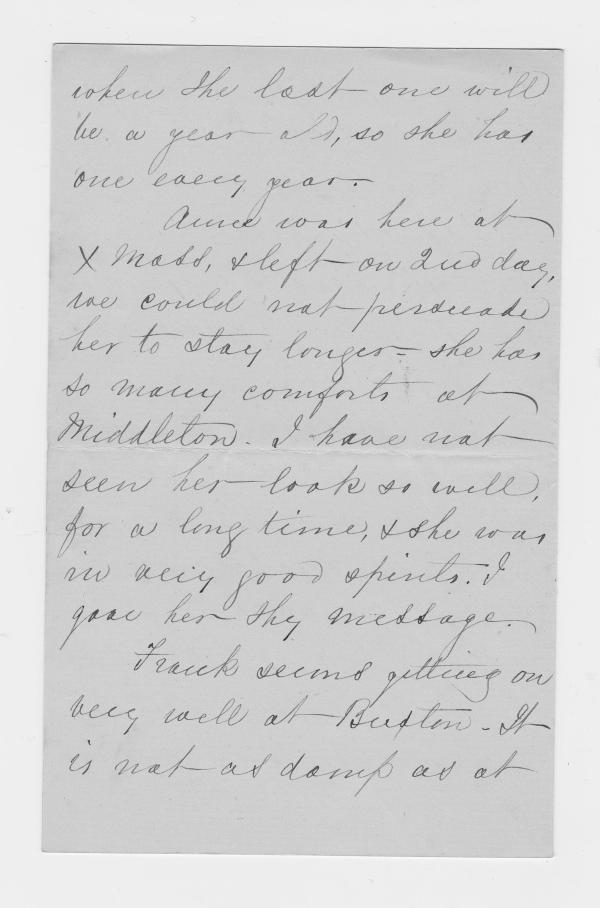 when the last one will
be a year old, so she has
one every year.
Anne was here at
X Mass, & left on 2nd day,
we could not persuade
her to stay longer - she has
so many comforts at
Middleton. I have not
seen her look so well,
for a long time, & she was
in very good spirits. I
gave her thy message.
Frank seems getting on
very well at Buxton - It
is not as damp as at